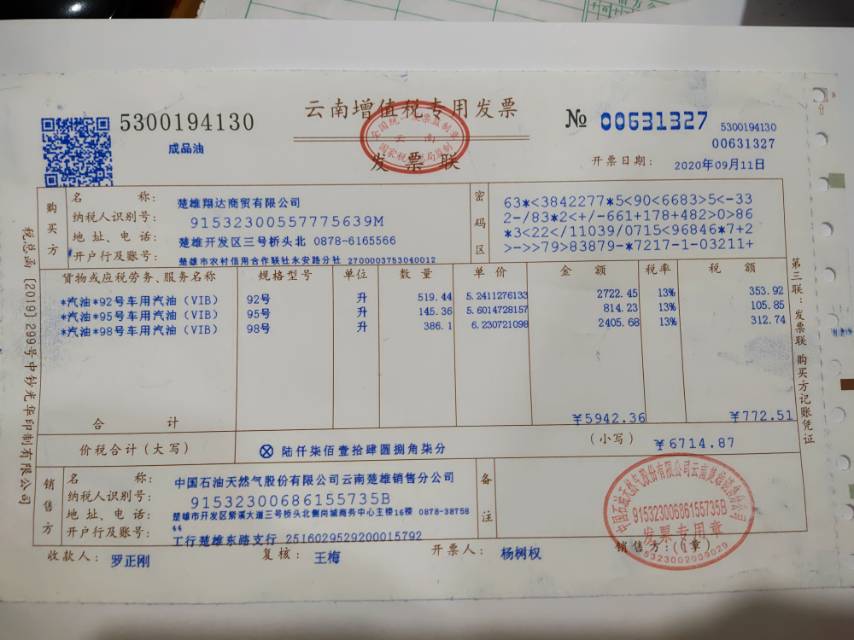 云南增值税专用发票
发票联
5300194130
成品油
№ 00631327
5300194130
00631327
开票日期: 2020年09月11日
购买方
名 称: 楚雄翔达商贸有限公司
纳税人识别号: 91532300557775639M
地址、电话: 楚雄开发区三号桥头北 0878-6165566
开户行及账号: 楚雄市农村信用合作联社永安路分社 2700003753040012
密码区
63*<3842277*5<90<6683>5<-33
2-/83*2<+/-661+178+482>0>86
*3<22</11039/0715<96846*7+2
>->>79>83879-*7217-1-03211+
货物或应税劳务、服务名称 规格型号 单位 数量 单价 金额 税率 税额
*汽油*92号车用汽油(VIB) 92号 升 519.44 5.2411276133 2722.45 13% 353.92
*汽油*95号车用汽油(VIB) 95号 升 145.36 5.6014728157 814.23 13% 105.85
*汽油*98号车用汽油(VIB) 98号 升 386.1 6.230721098 2405.68 13% 312.74
合 计 ¥5942.36 ¥772.51
价税合计(大写) ⊗ 陆仟柒佰壹拾肆圆捌角柒分 (小写) ¥6714.87
销售方
名 称: 中国石油天然气股份有限公司云南楚雄销售分公司
纳税人识别号: 91532300686155735B
地址、电话: 楚雄市开发区紫溪大道三号桥头北侧尚城商务中心主楼16楼 0878-38758
44
开户行及账号: 工行楚雄东路支行 2516029529200015792
备注
收款人: 罗正刚 复核: 王梅 开票人: 杨树权 销售方:(章)
91532300686155735B
发票专用章
税总函〔2019〕299号中钞光华印制有限公司
第三联:发票联 购买方记账凭证